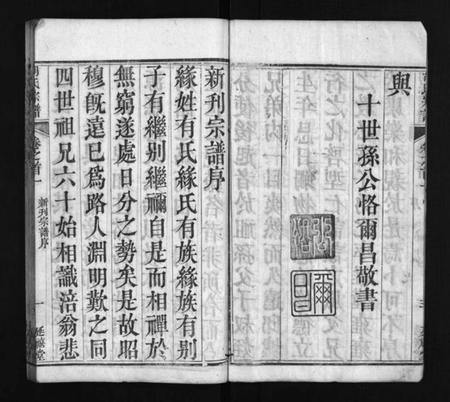 與
十世孫公恪爾昌敬書
公恪
爾昌
新刊宗譜序
緣姓有氏緣氏有族緣族有別
子有繼別繼禰自是而相禪於
無窮遂處日分之勢矣是故昭
穆旣遠已為路人淵明歎之同
四世祖兄六十始相識涪翁悲
氏宗譜
卷之首
新刊宗譜序
一